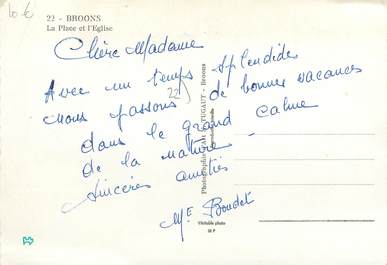 10 €
22 - BROONS
La Place et l'Eglise
Chère Madame
Avec un temps splendide
nous passons de bonnes vacances
22
dans le grand calme
de la nature -
Sincères amitiés
Me Boudet
Broons
Véritable photo